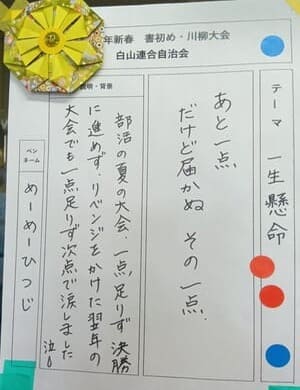 年新春 書初め・川柳大会
白山連合自治会
テーマ 一生懸命
あと一点、
だけど届かぬ その一点.
説明・背景
部活の夏の大会、一点足りず決勝
に進めず、リベンジをかけた翌年の
大会でも一点足りず次点で涙しました
泣
ペン
ネーム
めーめーひつじ